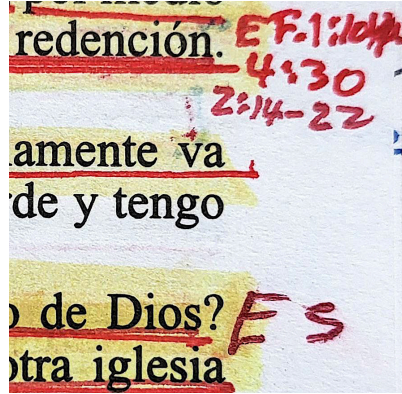 redención. EF. 1:10
4:30
2:14-22
amente va
de y tengo
o de Dios? F S
otra iglesia